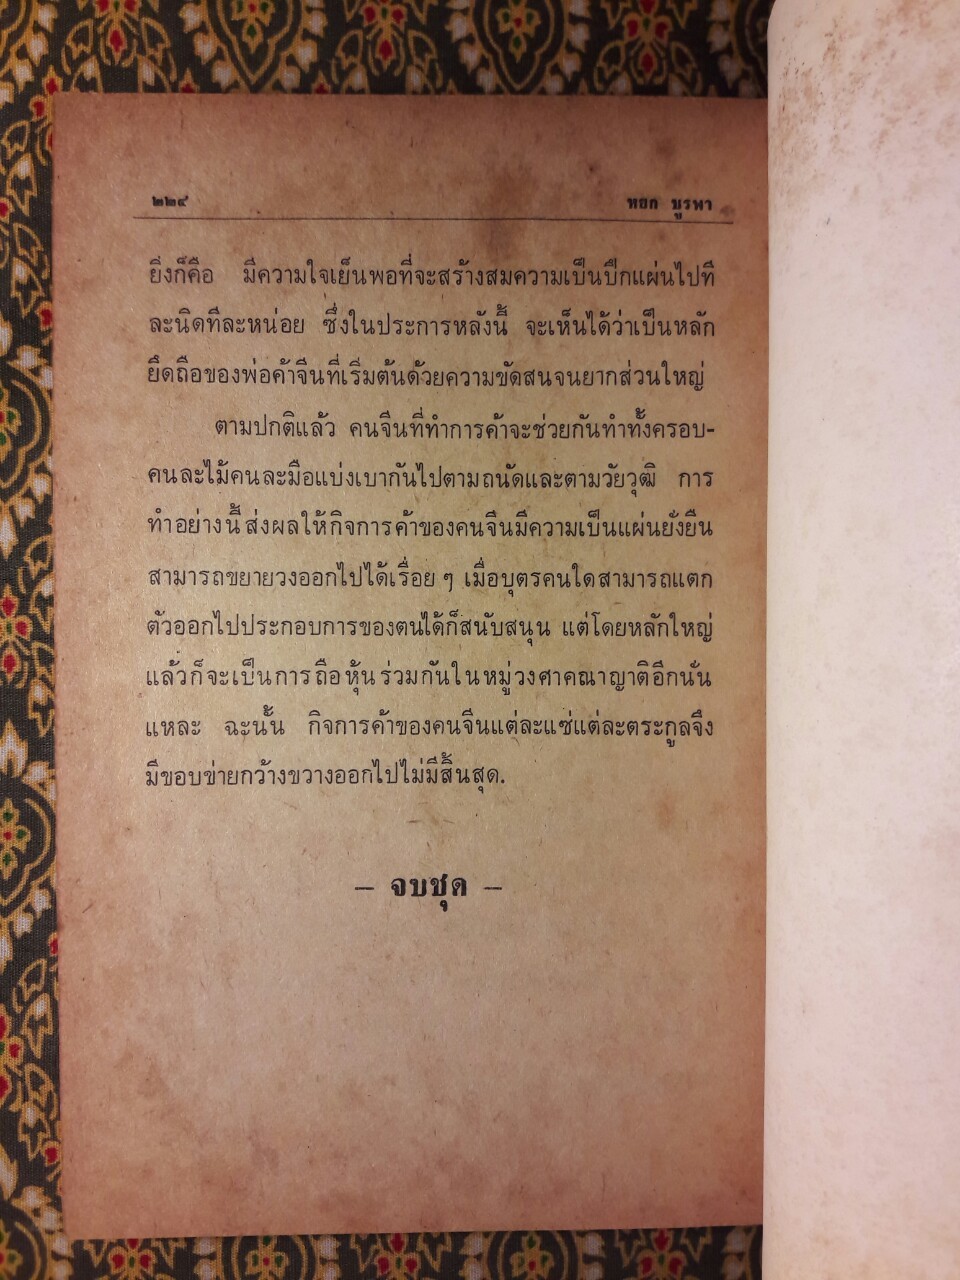 ๒๒๔ หยก บูรพา
ยิ่งก็คือ มีความใจเย็นพอที่จะสร้างสมความเป็นปึกแผ่นไปที
ละนิดทีละหน่อย ซึ่งในประการหลังนี้ จะเห็นได้ว่าเป็นหลัก
ยึดถือของพ่อค้าจีนที่เริ่มต้นด้วยความขัดสนจนยากส่วนใหญ่
ตามปกติแล้ว คนจีนที่ทำการค้าจะช่วยกันทำทั้งครอบ-
คนละไม้คนละมือแบ่งเบากันไปตามถนัดและตามวัยวุฒิ การ
ทำอย่างนี้ส่งผลให้กิจการค้าของคนจีนมีความเป็นแผ่นยั่งยืน
สามารถขยายวงออกไปได้เรื่อย ๆ เมื่อบุตรคนใดสามารถแตก
ตัวออกไปประกอบการของตนได้ก็สนับสนุน แต่โดยหลักใหญ่
แล้วก็จะเป็นการถือหุ้นร่วมกันในหมู่วงศาคณาญาติอีกนั่น
แหละ ฉะนั้น กิจการค้าของคนจีนแต่ละแซ่แต่ละตระกูลจึง
มีขอบข่ายกว้างขวางออกไปไม่มีสิ้นสุด.
– จบชุด –